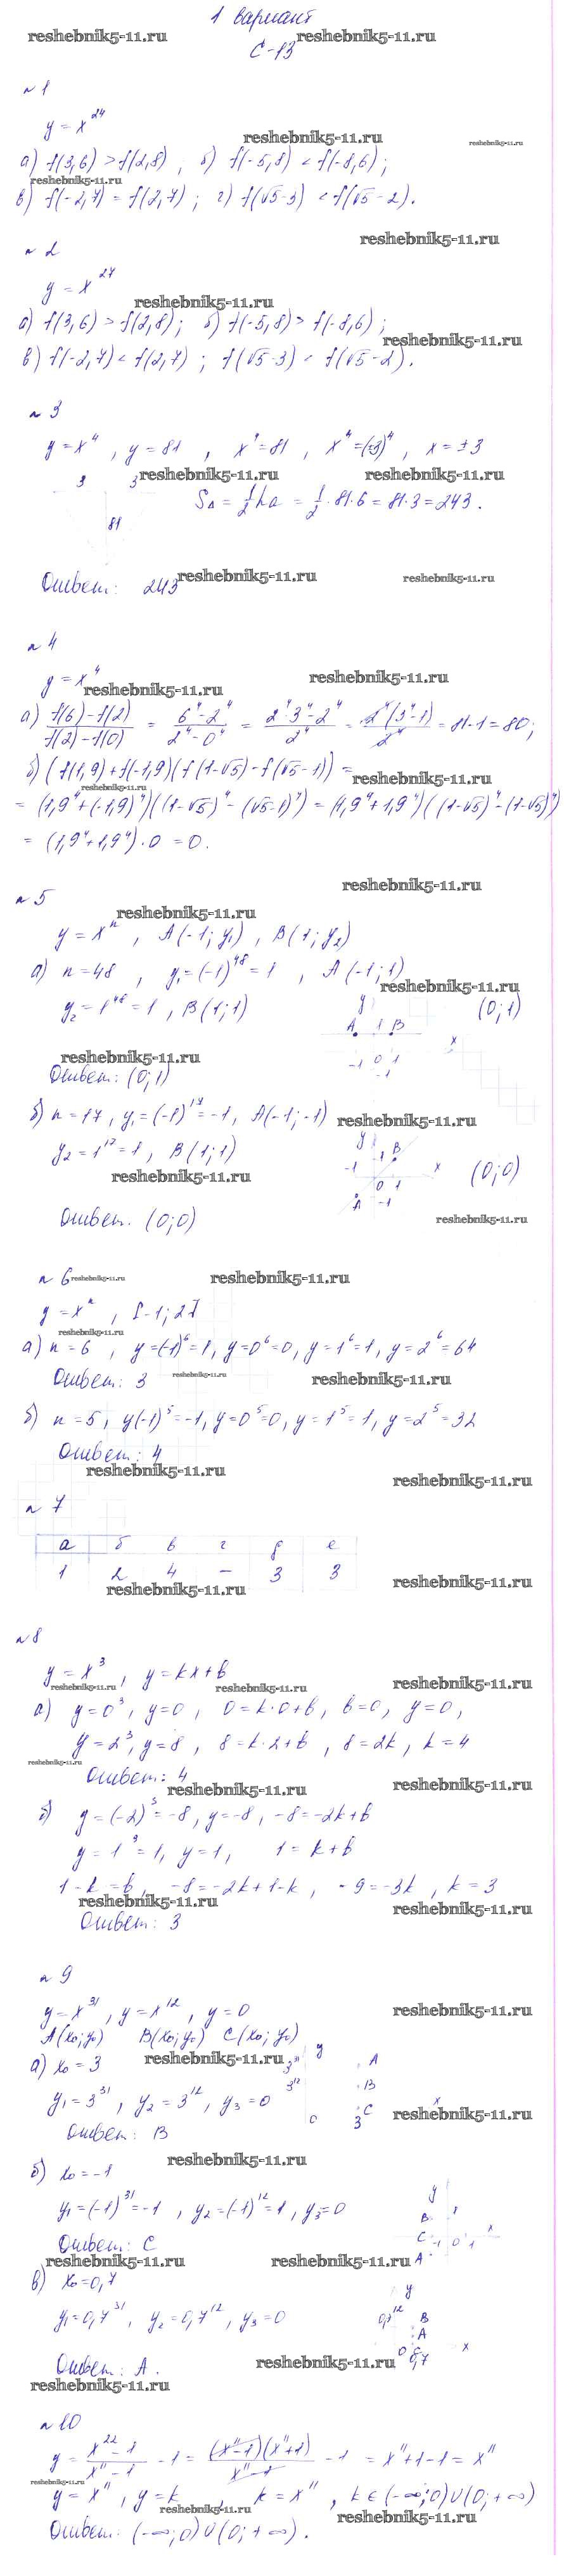 1 вариант
reshebnik5-11.ru reshebnik5-11.ru
С-13
№1
y = x^24
reshebnik5-11.ru reshebnik5-11.ru
а) f(3,6) > f(2,8) ; б) f(-5,8) < f(-8,6);
reshebnik5-11.ru
в) f(-2,7) = f(2,7) ; г) f(√5-3) < f(√5-2).
reshebnik5-11.ru
№2
y = x^27
reshebnik5-11.ru
а) f(3,6) > f(2,8); б) f(-5,8) > f(-8,6);
reshebnik5-11.ru
в) f(-2,7) < f(2,7) ; f(√5-3) < f(√5-2).
№3
y = x^4 , y = 81 , x^4 = 81 , x^4 = (±3)^4 , x = ±3
3 3 reshebnik5-11.ru reshebnik5-11.ru
81 S△ = 1/2 ha = 1/2 · 81 · 6 = 81 · 3 = 243.
reshebnik5-11.ru reshebnik5-11.ru
Ответ: 243
№4
y = x^4 reshebnik5-11.ru
reshebnik5-11.ru
а) (f(6) - f(2))/(f(2) - f(0)) = (6^4 - 2^4)/(2^4 - 0^4) = (2^4 · 3^4 - 2^4)/2^4 = 2^4(3^4 - 1)/2^4 = 81 - 1 = 80;
б) (f(1,9) + f(-1,9)(f(1-√5) - f(√5-1)) =
reshebnik5-11.ru reshebnik5-11.ru
= (1,9^4 + (-1,9)^4)((1-√5)^4 - (√5-1)^4) = (1,9^4 + 1,9^4)((1-√5)^4 - (1-√5)^4)
= (1,9^4 + 1,9^4) · 0 = 0.
reshebnik5-11.ru
№5
reshebnik5-11.ru
y = x^n , A(-1; y1) , B(1; y2)
а) n = 48 , y1 = (-1)^48 = 1 , A(-1; 1)
reshebnik5-11.ru
y2 = 1^48 = 1 , B(1; 1) y (0; 1)
A 1 B
x
-1 0 1
-1
reshebnik5-11.ru
Ответ: (0; 1)
б) n = 17 , y1 = (-1)^17 = -1 , A(-1; -1)
reshebnik5-11.ru
y2 = 1^17 = 1 , B(1; 1) y
1 B
-1 x (0; 0)
0 1
A -1
reshebnik5-11.ru
Ответ. (0; 0)
reshebnik5-11.ru
№6 reshebnik5-11.ru reshebnik5-11.ru
y = x^n , [-1; 2]
reshebnik5-11.ru
а) n = 6 , y = (-1)^6 = 1, y = 0^6 = 0, y = 1^6 = 1, y = 2^6 = 64
Ответ: 3 reshebnik5-11.ru reshebnik5-11.ru
б) n = 5, y(-1)^5 = -1, y = 0^5 = 0, y = 1^5 = 1, y = 2^5 = 32
Ответ: 4
reshebnik5-11.ru reshebnik5-11.ru
№7
а б в г д е
1 2 4 – 3 3
reshebnik5-11.ru reshebnik5-11.ru
№8
y = x^3 , y = kx + b
reshebnik5-11.ru reshebnik5-11.ru reshebnik5-11.ru
а) y = 0^3, y = 0, 0 = k · 0 + b, b = 0, y = 0,
y = 2^3, y = 8, 8 = k · 2 + b , 8 = 2k , k = 4
reshebnik5-11.ru
Ответ: 4
reshebnik5-11.ru reshebnik5-11.ru
б) y = (-2)^3 = -8, y = -8, -8 = -2k + b
y = 1^3 = 1, y = 1, 1 = k + b
1 - k = b, -8 = -2k + 1 - k , -9 = -3k , k = 3
reshebnik5-11.ru reshebnik5-11.ru
Ответ: 3
№9
y = x^31, y = x^12, y = 0 reshebnik5-11.ru
A(x0; y0) B(x0; y0) C(x0; y0)
а) x0 = 3 reshebnik5-11.ru
y
3^31 A
3^12 B
y1 = 3^31, y2 = 3^12, y3 = 0
x
0 3 C
reshebnik5-11.ru
Ответ: B
reshebnik5-11.ru
б) x0 = -1
y1 = (-1)^31 = -1 , y2 = (-1)^12 = 1, y3 = 0
y
B 1
x
C -1 0 1
A
Ответ: C
reshebnik5-11.ru reshebnik5-11.ru
в) x0 = 0,7
y
y1 = 0,7^31, y2 = 0,7^12, y3 = 0
B
A
0 C x
0,7
Ответ: A.
reshebnik5-11.ru
reshebnik5-11.ru
№10
y = (x^22 - 1)/(x^11 - 1) - 1 = (x^11 - 1)(x^11 + 1)/(x^11 - 1) - 1 = x^11 + 1 - 1 = x^11
reshebnik5-11.ru
y = x^11, y = k , k = x^11 , k ∈ (-∞; 0) ∪ (0; +∞)
reshebnik5-11.ru reshebnik5-11.ru
Ответ: (-∞; 0) ∪ (0; +∞).